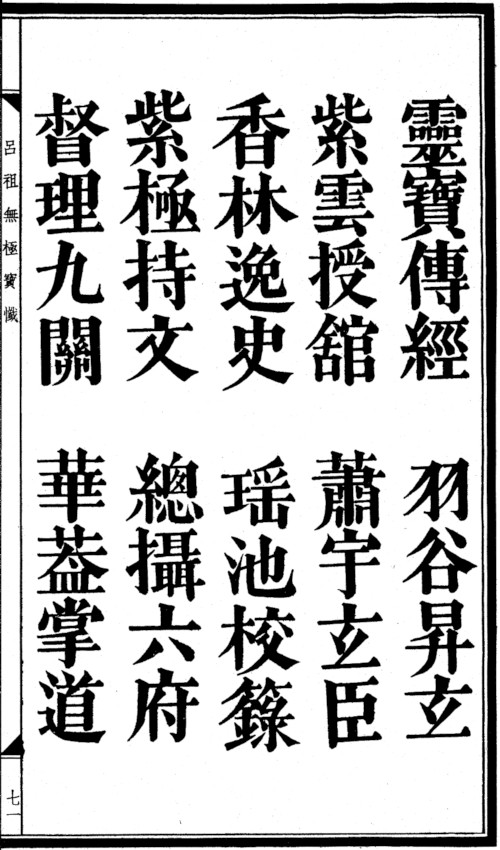 靈寶傳經　羽谷昇玄
紫雲授舘　蕭宇玄臣
香林逸史　瑶池校籙
紫極持文　總攝六府
督理九關　華葢掌道
呂祖無極寶懺
七一